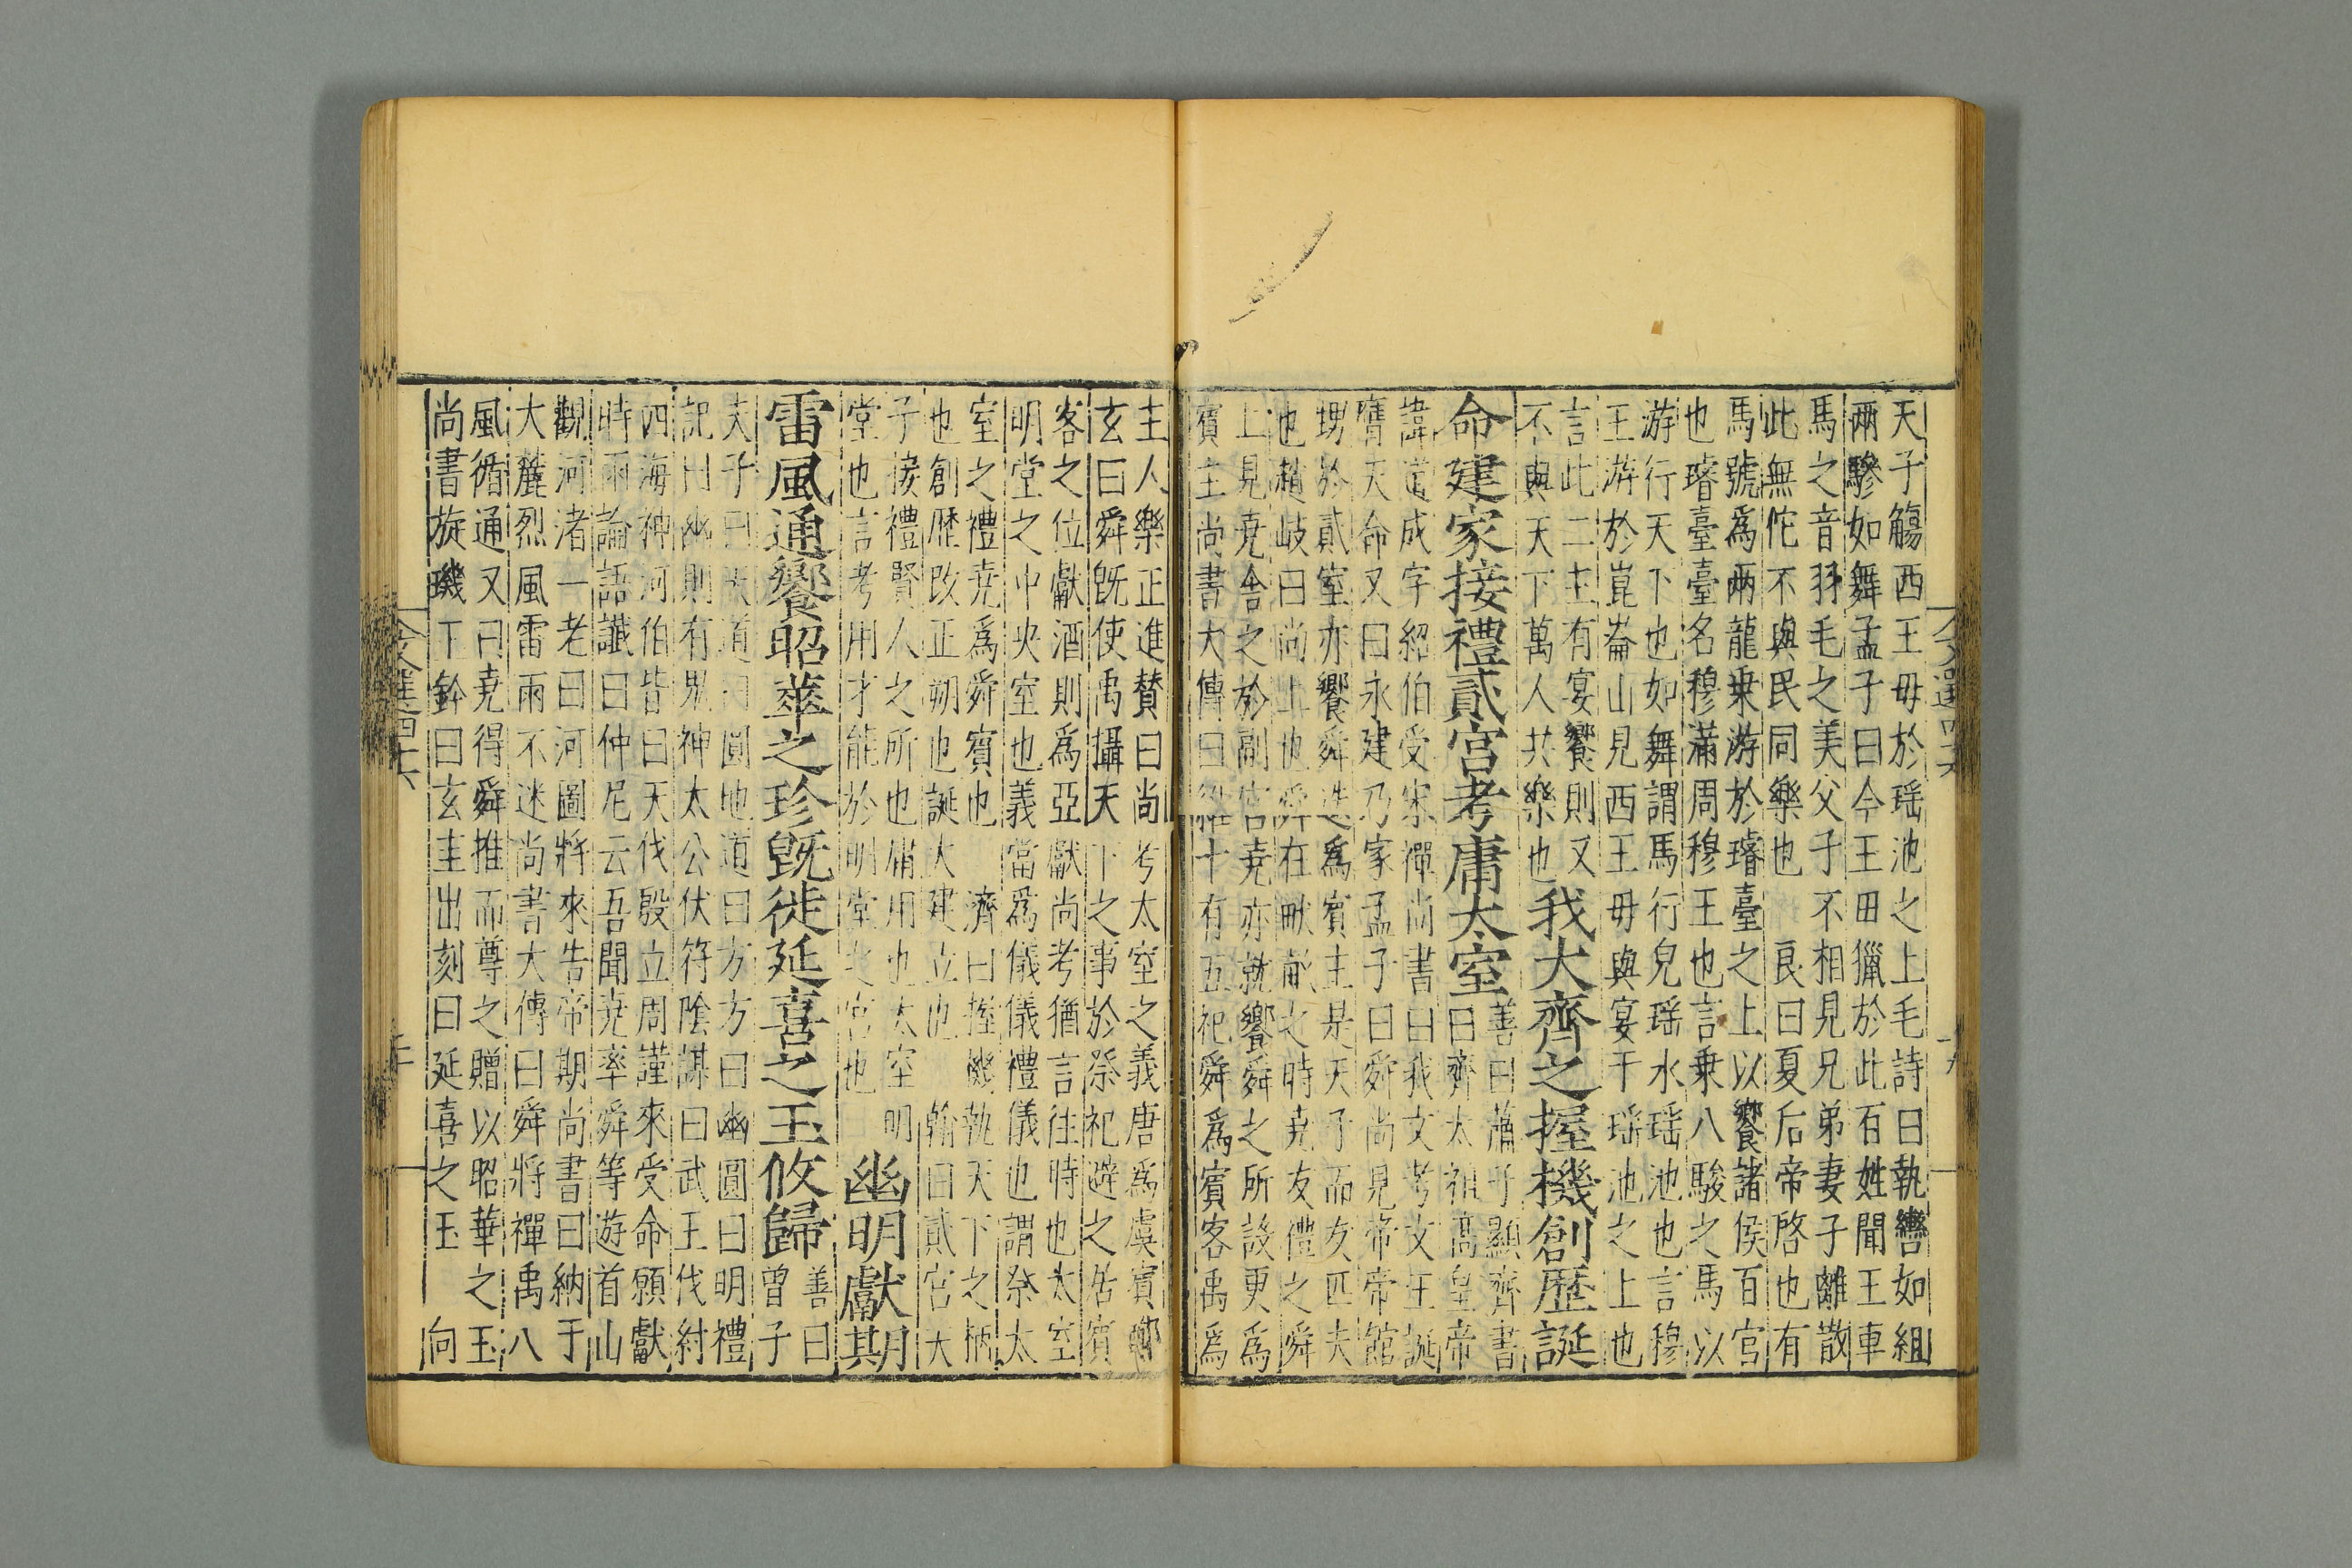 天子觴西王母於瑶池之上毛詩曰執轡如組
兩驂如舞孟子曰今王田獵於此百姓聞王車
馬之音羽毛之美父子不相見兄弟妻子離散
此無佗不與民同樂也 良曰夏后帝啓也有
馬號爲兩龍乗游於璿臺之上以饗諸侯百官
也璿臺臺名穆滿周穆王也言乗八駿之馬以
游行天下也如舞謂馬行皃瑶水瑶池也言穆
王游於崑崙山見西王母與宴于瑶池之上也
言此二主有宴饗則又
不與天下萬人共樂也
我大齊之握機創歷誕
命建家接禮貳宮考庸太室
善曰蕭子顯齊書
曰齊太祖高皇帝
諱道成字紹伯受宋禪尚書曰我文考文王誕
膺天命又曰永建乃家孟子曰舜尚見帝帝館
甥於貳室亦饗舜迭爲賓主是天子而友匹夫
也趙岐曰尚上也舜在畎畝之時堯友禮之舜
上見堯舍之於副宮堯亦就饗舜之所設更爲
賓主尚書大傳曰維十有五祀舜爲賓客禹爲
文選四六
十九
主人樂正進賛曰尚考太室之義唐爲虞賓鄭
玄曰舜旣使禹攝天下之事於祭祀避之居賓
客之位獻酒則爲亞獻尚考猶言往時也太室
明堂之中央室也義當爲儀儀禮儀也謂祭太
室之禮堯爲舜賓也 濟曰握機執天下之柄
也創歷改正朔也誕大建立也 翰曰貳宮天
子接禮賢人之所也庸用也太室明
堂也言考用才能於明堂之宮也
幽明獻期
雷風通饗昭華之珍旣徙延喜之玉攸歸
善曰
曽子
夫子曰天道曰圓地道曰方方曰幽圓曰明禮
記曰幽則有鬼神太公伏符陰謀曰武王伐紂
四海神河伯皆曰天伐殷立周謹來受命願獻
時雨論語讖曰仲尼云吾聞堯率舜等遊首山
觀河渚一老曰河圖將來告帝期尚書曰納于
大麓烈風雷雨不迷尚書大傳曰舜將禪禹八
風循通又曰堯得舜推而尊之贈以昭華之玉
尚書旋璣下鈐曰玄圭出刻曰延喜之玉 向
文選四六
二十